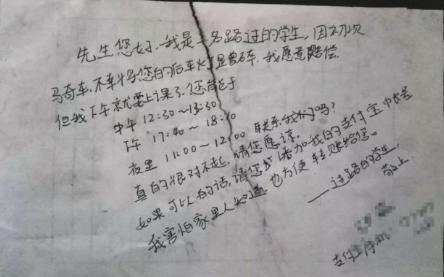 先生您好,我是一名路过的学生,因初次
骑车,不幸将您的后车灯显些碎,我愿意赔偿.
但我下午就要上课了,还荷包于
中午 12:30~13:30
下午 17:40~18:10
夜里 11:00~12:00 联系我好吗?
真的很对不起,请您原谅,
如果可以的话,请您添加我的支付宝中长名
我害怕家里人知道也方便转账给您。
——过路的学生.
敬上
支付宝手机